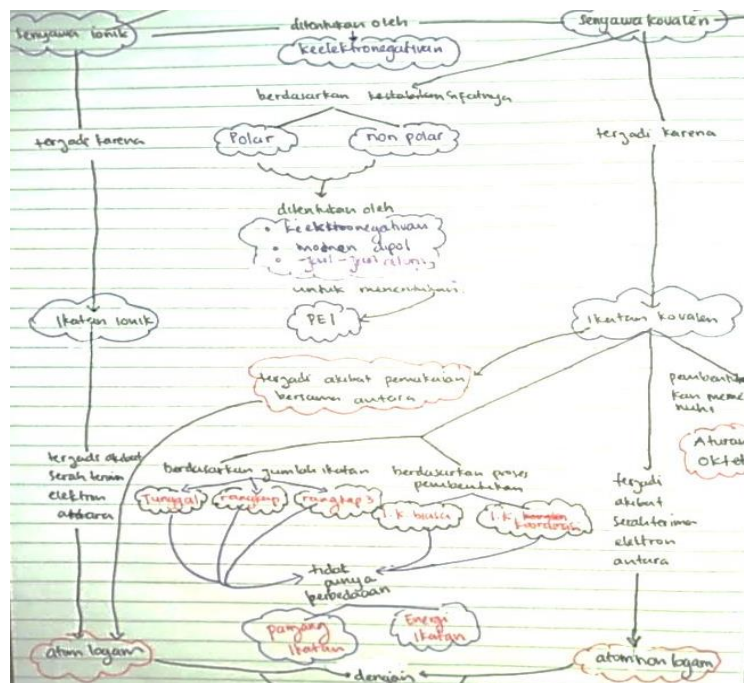 Senyawa ionik
ditentukan oleh
Senyawa kovalen
keelektronegativan
berdasarkan kestabilan sifatnya
terjadi karena
Polar
non polar
terjadi karena
ditentukan oleh
• keelektronegativan
• momen dipol
untuk menentukan
Ikatan ionik
PEI
Ikatan kovalen
terjadi akibat pemakaian
bersama antara
pembentu
kan meme
nuhi
Aturan
Oktet
terjadi akibat
serah terima
elektron
antara
berdasarkan jumlah ikatan
berdasarkan proses
pembentukan
Tunggal
rangkap
rangkap 3
I.K biasa
I.K koordinasi
terjadi
akibat
serah terima
elektron
antara
tidak
punya
perbedaan
panjang
Ikatan
Energi
Ikatan
atom logam
atom non logam
dengan